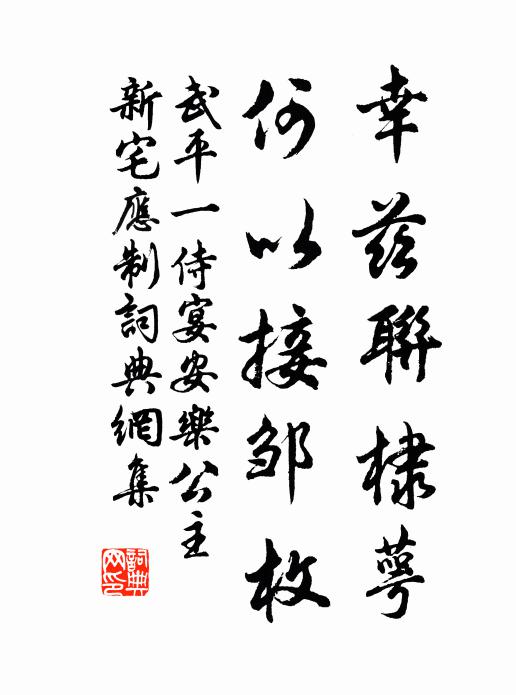 幸茲聯棣萼
何以接邹枚
武平一侍宴安樂公主
新宅應制詞典網集
詞典网印